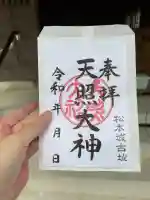 奉拝
天照大神
令和 年 月 日
松本城古城